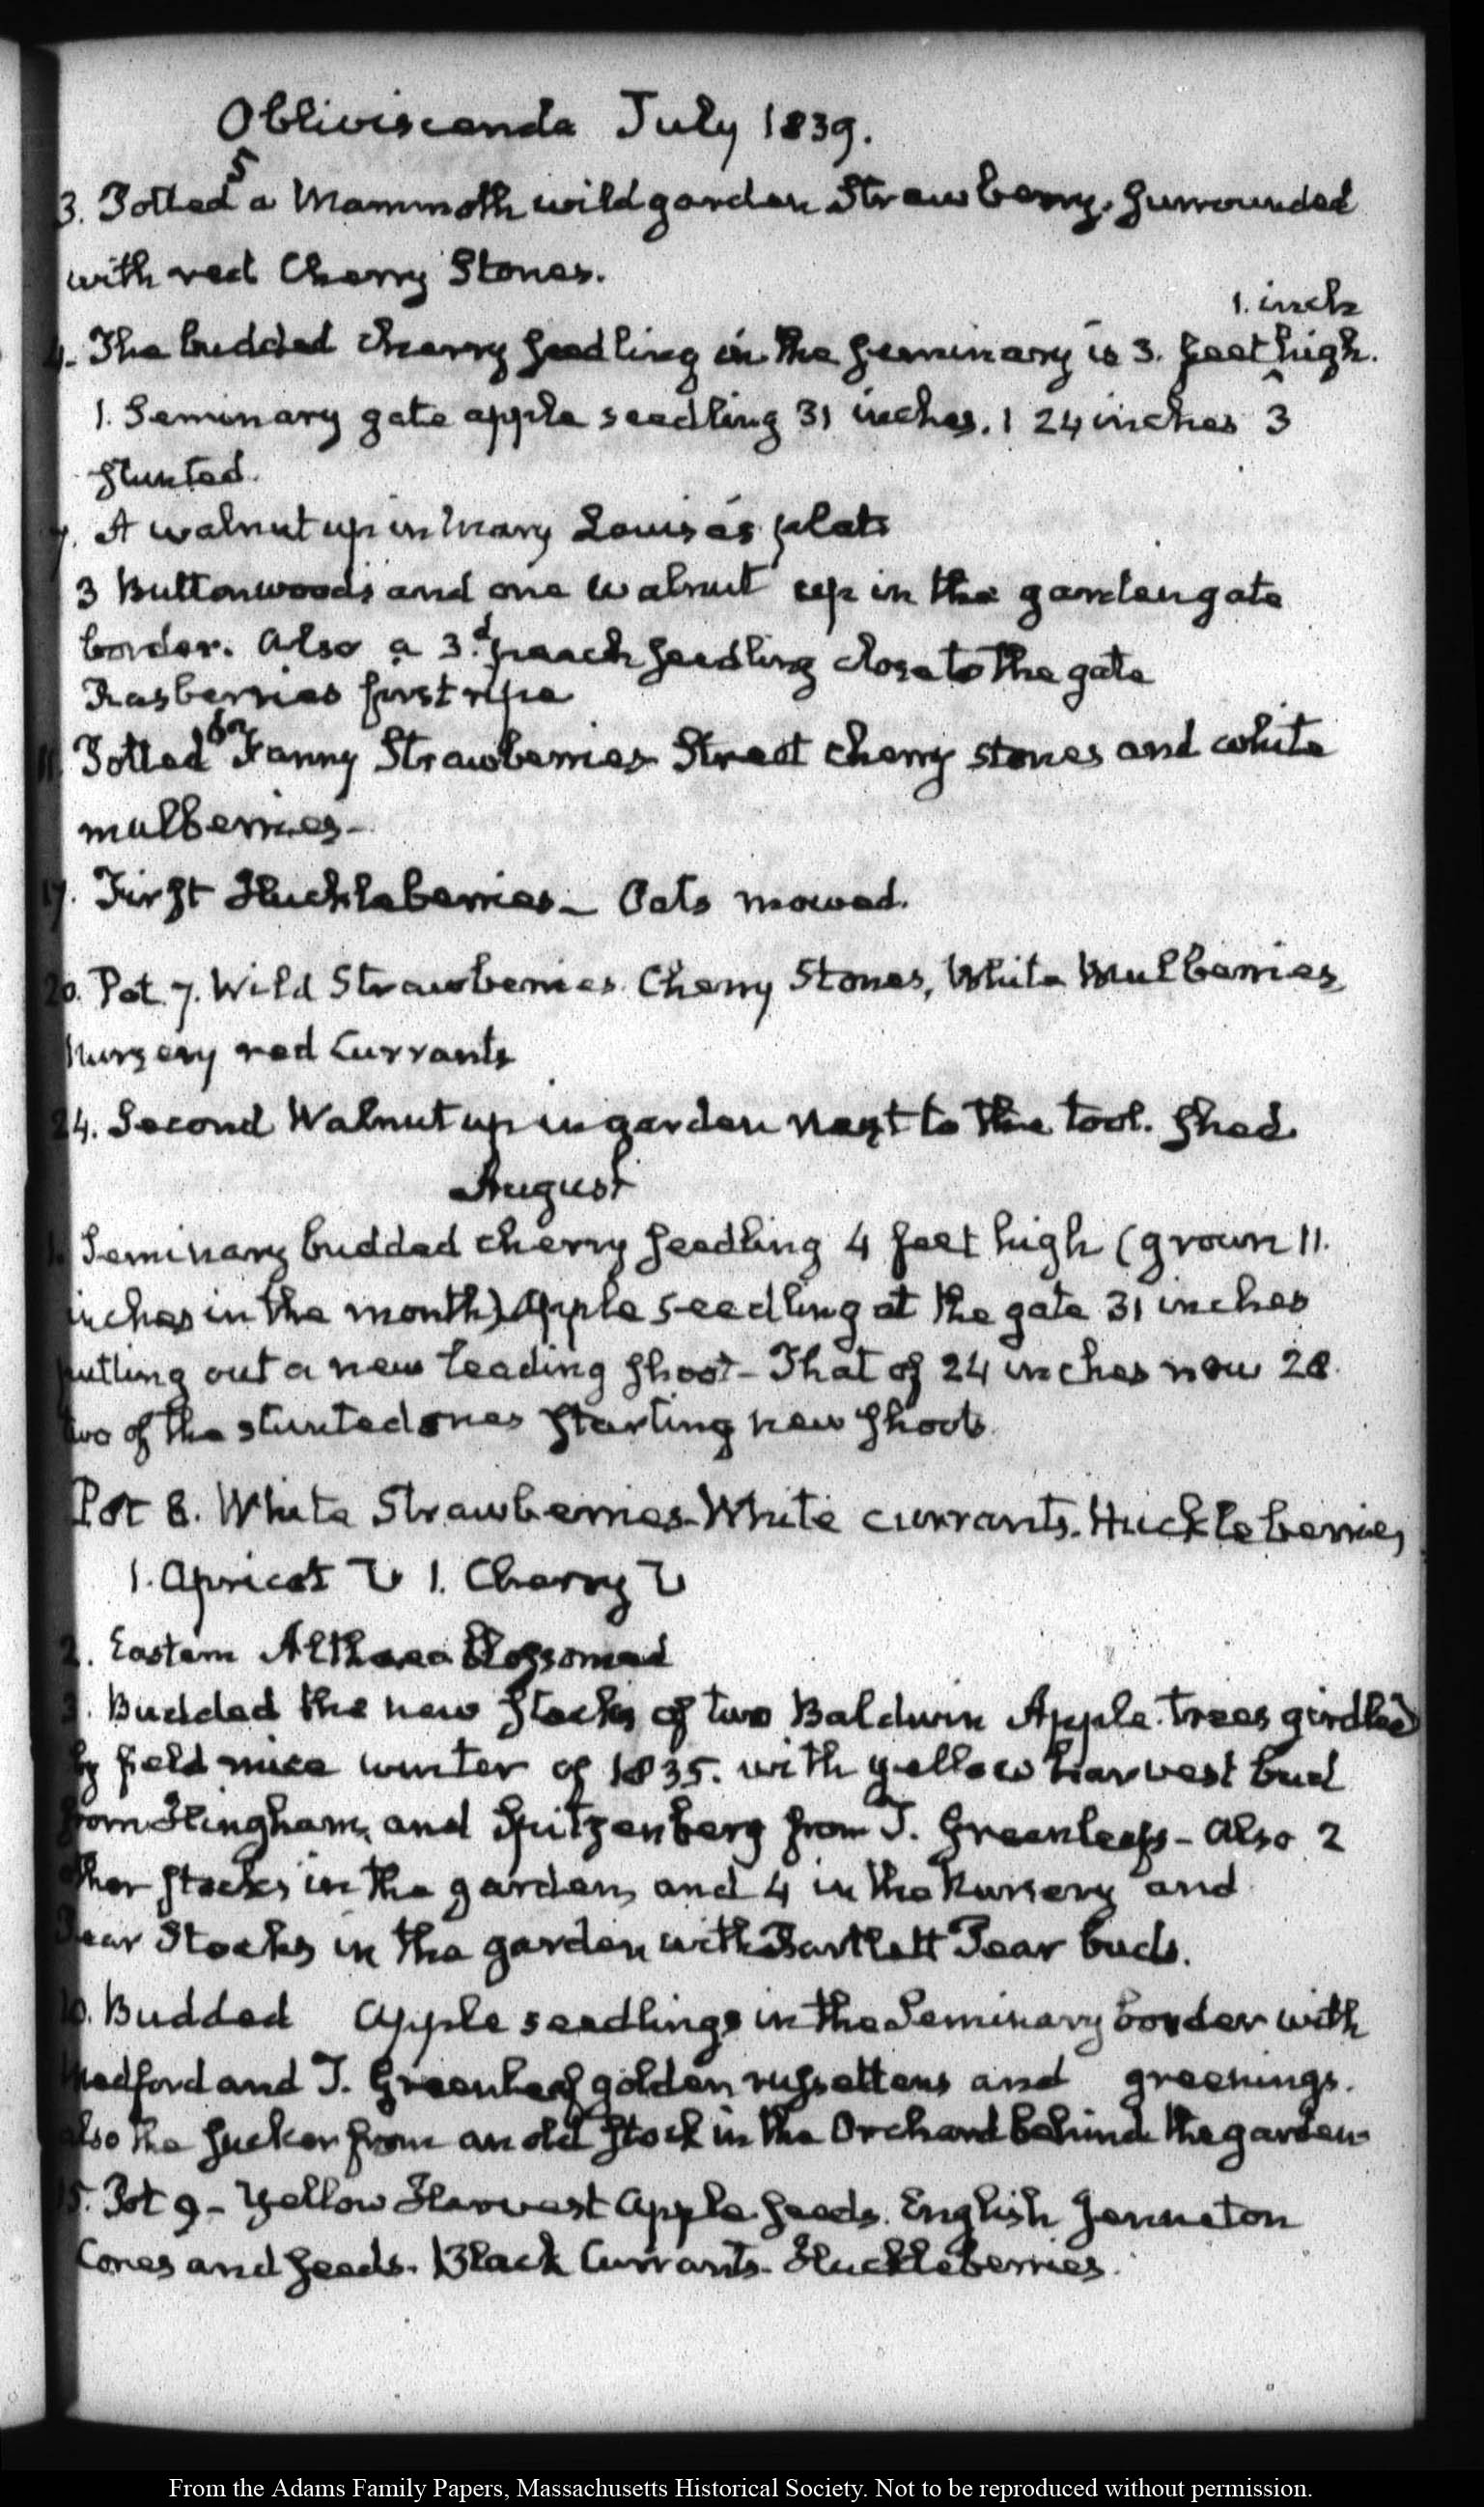 Obliviscenda July 1839.
5
3. Potted a Mammoth wild garden Strawberry. surrounded
with red Cherry Stones.
1. inch
4. The budded cherry seedling in the seminary is 3. feet ^ high.
1. Seminary gate apple seedling 31 inches. 1 24 inches 3
stunted.
7. A walnut up in Mary Louisa's plat
3 Buttonwoods and one walnut up in the garden gate
border. Also a 3.d peach seedling close to the gate
Rasberries first ripe
11. Potted Fanny Strawberries Street cherry stones and white
mulberries-
17. First Huckleberries- Oats mowed.
20. Pot 7. Wild Strawberries. Cherry Stones, White Mulberries,
Nursery red Currants
24. Second Walnut up in garden next to the tool. shed.
August
1. Seminary budded cherry seedling 4 feet high (grown 11.
inches in the month) Apple seedling at the gate 31 inches
putting out a new leading shoot- That of 24 inches now 28.
two of the stunted ones starting new shoots.
Pot 8. White Strawberries- White currants. Huckleberries,
1. Apricot 1. Cherry
2. Eastern Althaea blossomed
3. Budded the new stocks of two Baldwin Apple. trees girdled
by field mice winter of 1835. with yellow harvest bud
from Hingham, and Spitzenberg from T. Greenleafs- Also 2
other stocks in the garden, and 4 in the Nursery and
Pear Stocks in the garden with Bartlett Pear buds.
10. Budded Apple seedlings in the Seminary border with
Medford and T. Greenleaf golden russettens and greenings.
also the sucker from an old stock in the Orchard behind the garden
15. Pot 9- Yellow Harvest Apple. seeds. English Jenneton
Cores and seeds. Black Currants. Huckleberries.
From the Adams Family Papers, Massachusetts Historical Society. Not to be reproduced without permission.